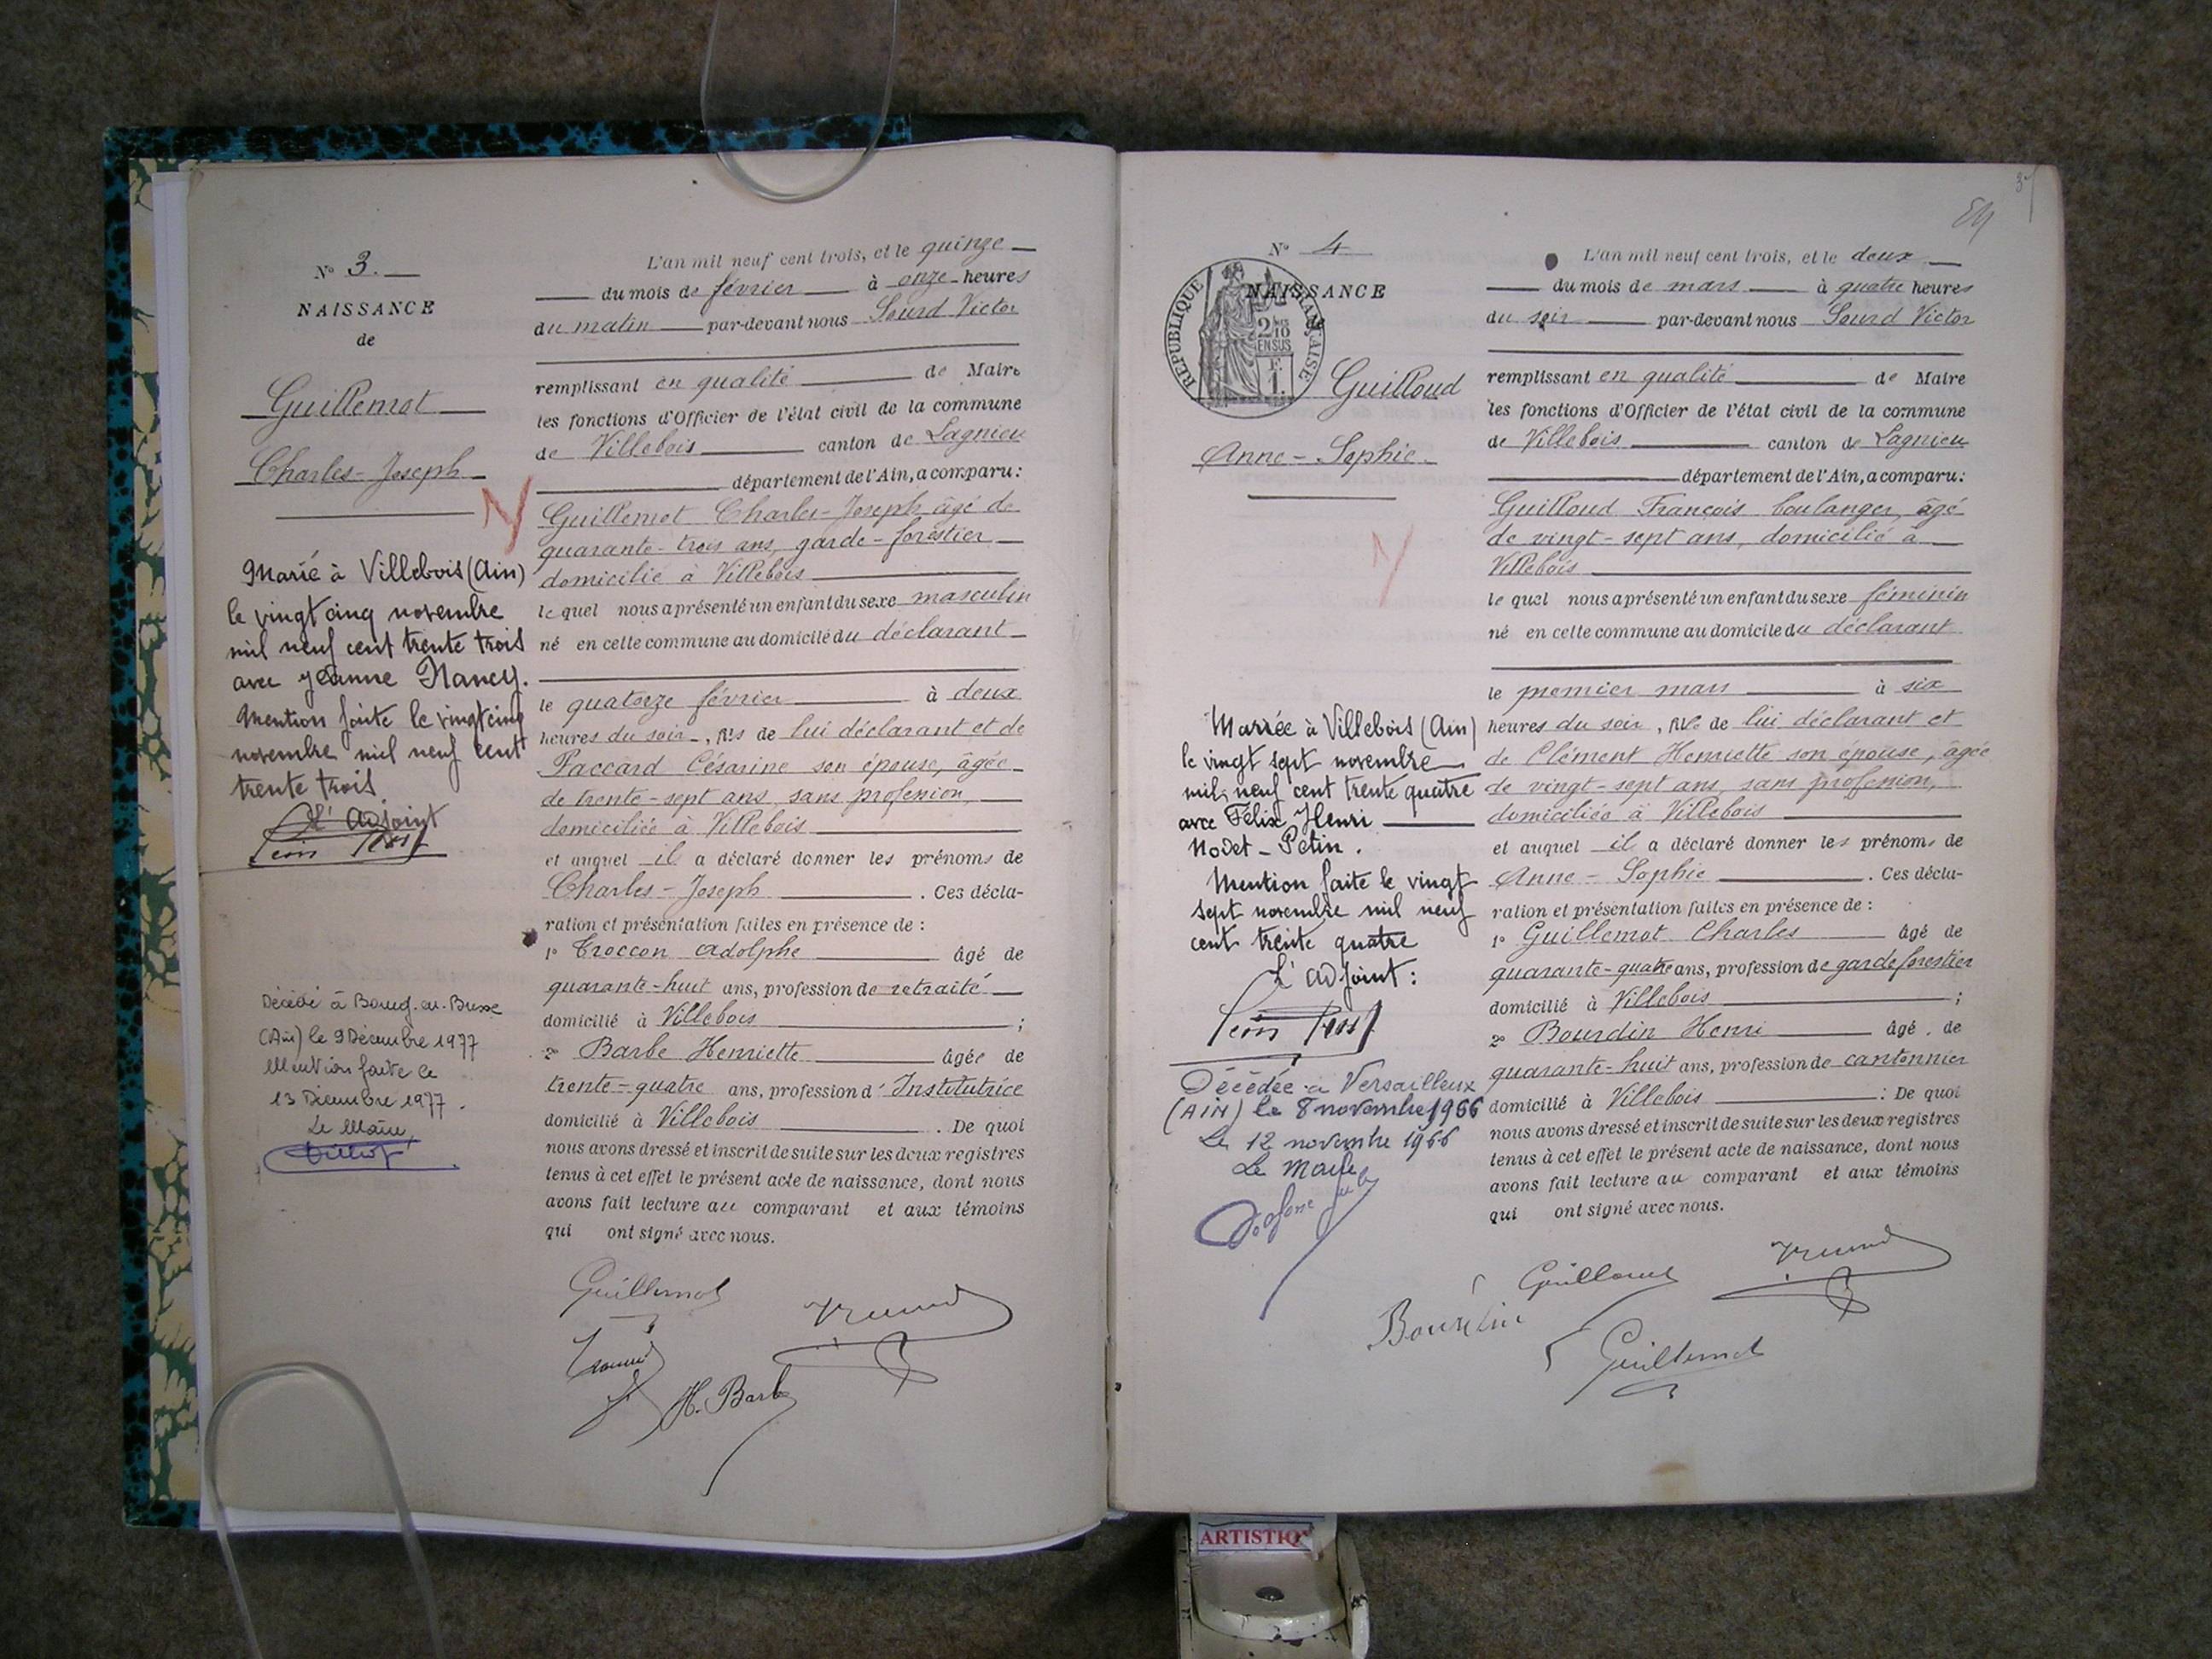 N° 3.
NAISSANCE
de
Guillemot
Charles-Joseph
Marié à Villebois (Ain)
le vingt cinq novembre
mil neuf cent trente trois
avec Jeanne Nancy.
Mention faite le vingt cinq
novembre mil neuf cent
trente trois
L'Adjoint
Décédé à Bourg-en-Bresse
(Ain) le 9 Décembre 1977
Mention faite le
13 Décembre 1977.
Le Maire,
L'an mil neuf cent trois, et le quinze
du mois de février à onze heures
du matin par-devant nous Sourd Victor
remplissant en qualité de Maire
les fonctions d'Officier de l'état civil de la commune
de Villebois canton de Lagnieu
département de l'Ain, a comparu:
Guillemot Charles-Joseph âgé de
quarante-trois ans, garde-forestier
domicilié à Villebois
le quel nous a présenté un enfant du sexe masculin
né en cette commune au domicile du déclarant
le quatorze février à deux
heures du soir, fils de lui déclarant et de
Paccard Césarine son épouse, âgée
de trente-sept ans, sans profession,
domiciliée à Villebois
et auquel il a déclaré donner les prénoms de
Charles-Joseph. Ces décla-
ration et présentation faites en présence de :
1° Troccon Adolphe âgé de
quarante-huit ans, profession de retraité
domicilié à Villebois ;
2° Barbe Henriette âgée de
trente-quatre ans, profession d'Institutrice
domicilié à Villebois. De quoi
nous avons dressé et inscrit de suite sur les deux registres
tenus à cet effet le présent acte de naissance, dont nous
avons fait lecture au comparant et aux témoins
qui ont signé avec nous.
Guillemot
H. Barbe
37
N° 4
NAISSANCE
de
REPUBLIQUE FRANÇAISE
2/10 EN SUS
F. 1.
Guilloud
Anne-Sophie
Mariée à Villebois (Ain)
le vingt sept novembre
mil neuf cent trente quatre
avec Félix Henri
Nodet-Petin.
Mention faite le vingt
sept novembre mil neuf
cent trente quatre
L'Adjoint:
Décédée à Versailleux
(AIN) le 8 novembre 1966
Le 12 novembre 1966
Le Maire
L'an mil neuf cent trois, et le deux
du mois de mars à quatre heures
du soir par-devant nous Sourd Victor
remplissant en qualité de Maire
les fonctions d'Officier de l'état civil de la commune
de Villebois canton de Lagnieu
département de l'Ain, a comparu:
Guilloud François boulanger, âgé
de vingt-sept ans, domicilié à
Villebois
le quel nous a présenté un enfant du sexe féminin
né en cette commune au domicile du déclarant
le premier mars à six
heures du soir, fille de lui déclarant et
de Clément Henriette son épouse, âgée
de vingt-sept ans, sans profession,
domiciliée à Villebois
et auquel il a déclaré donner les prénoms de
Anne-Sophie. Ces décla-
ration et présentation faites en présence de :
1° Guillemot Charles âgé de
quarante-quatre ans, profession de garde forestier
domicilié à Villebois ;
2° Bourdin Henri âgé de
quarante-huit ans, profession de cantonnier
domicilié à Villebois : De quoi
nous avons dressé et inscrit de suite sur les deux registres
tenus à cet effet le présent acte de naissance, dont nous
avons fait lecture au comparant et aux témoins
qui ont signé avec nous.
Guilloud
Bourdin
Guillemot
ARTISTIQ